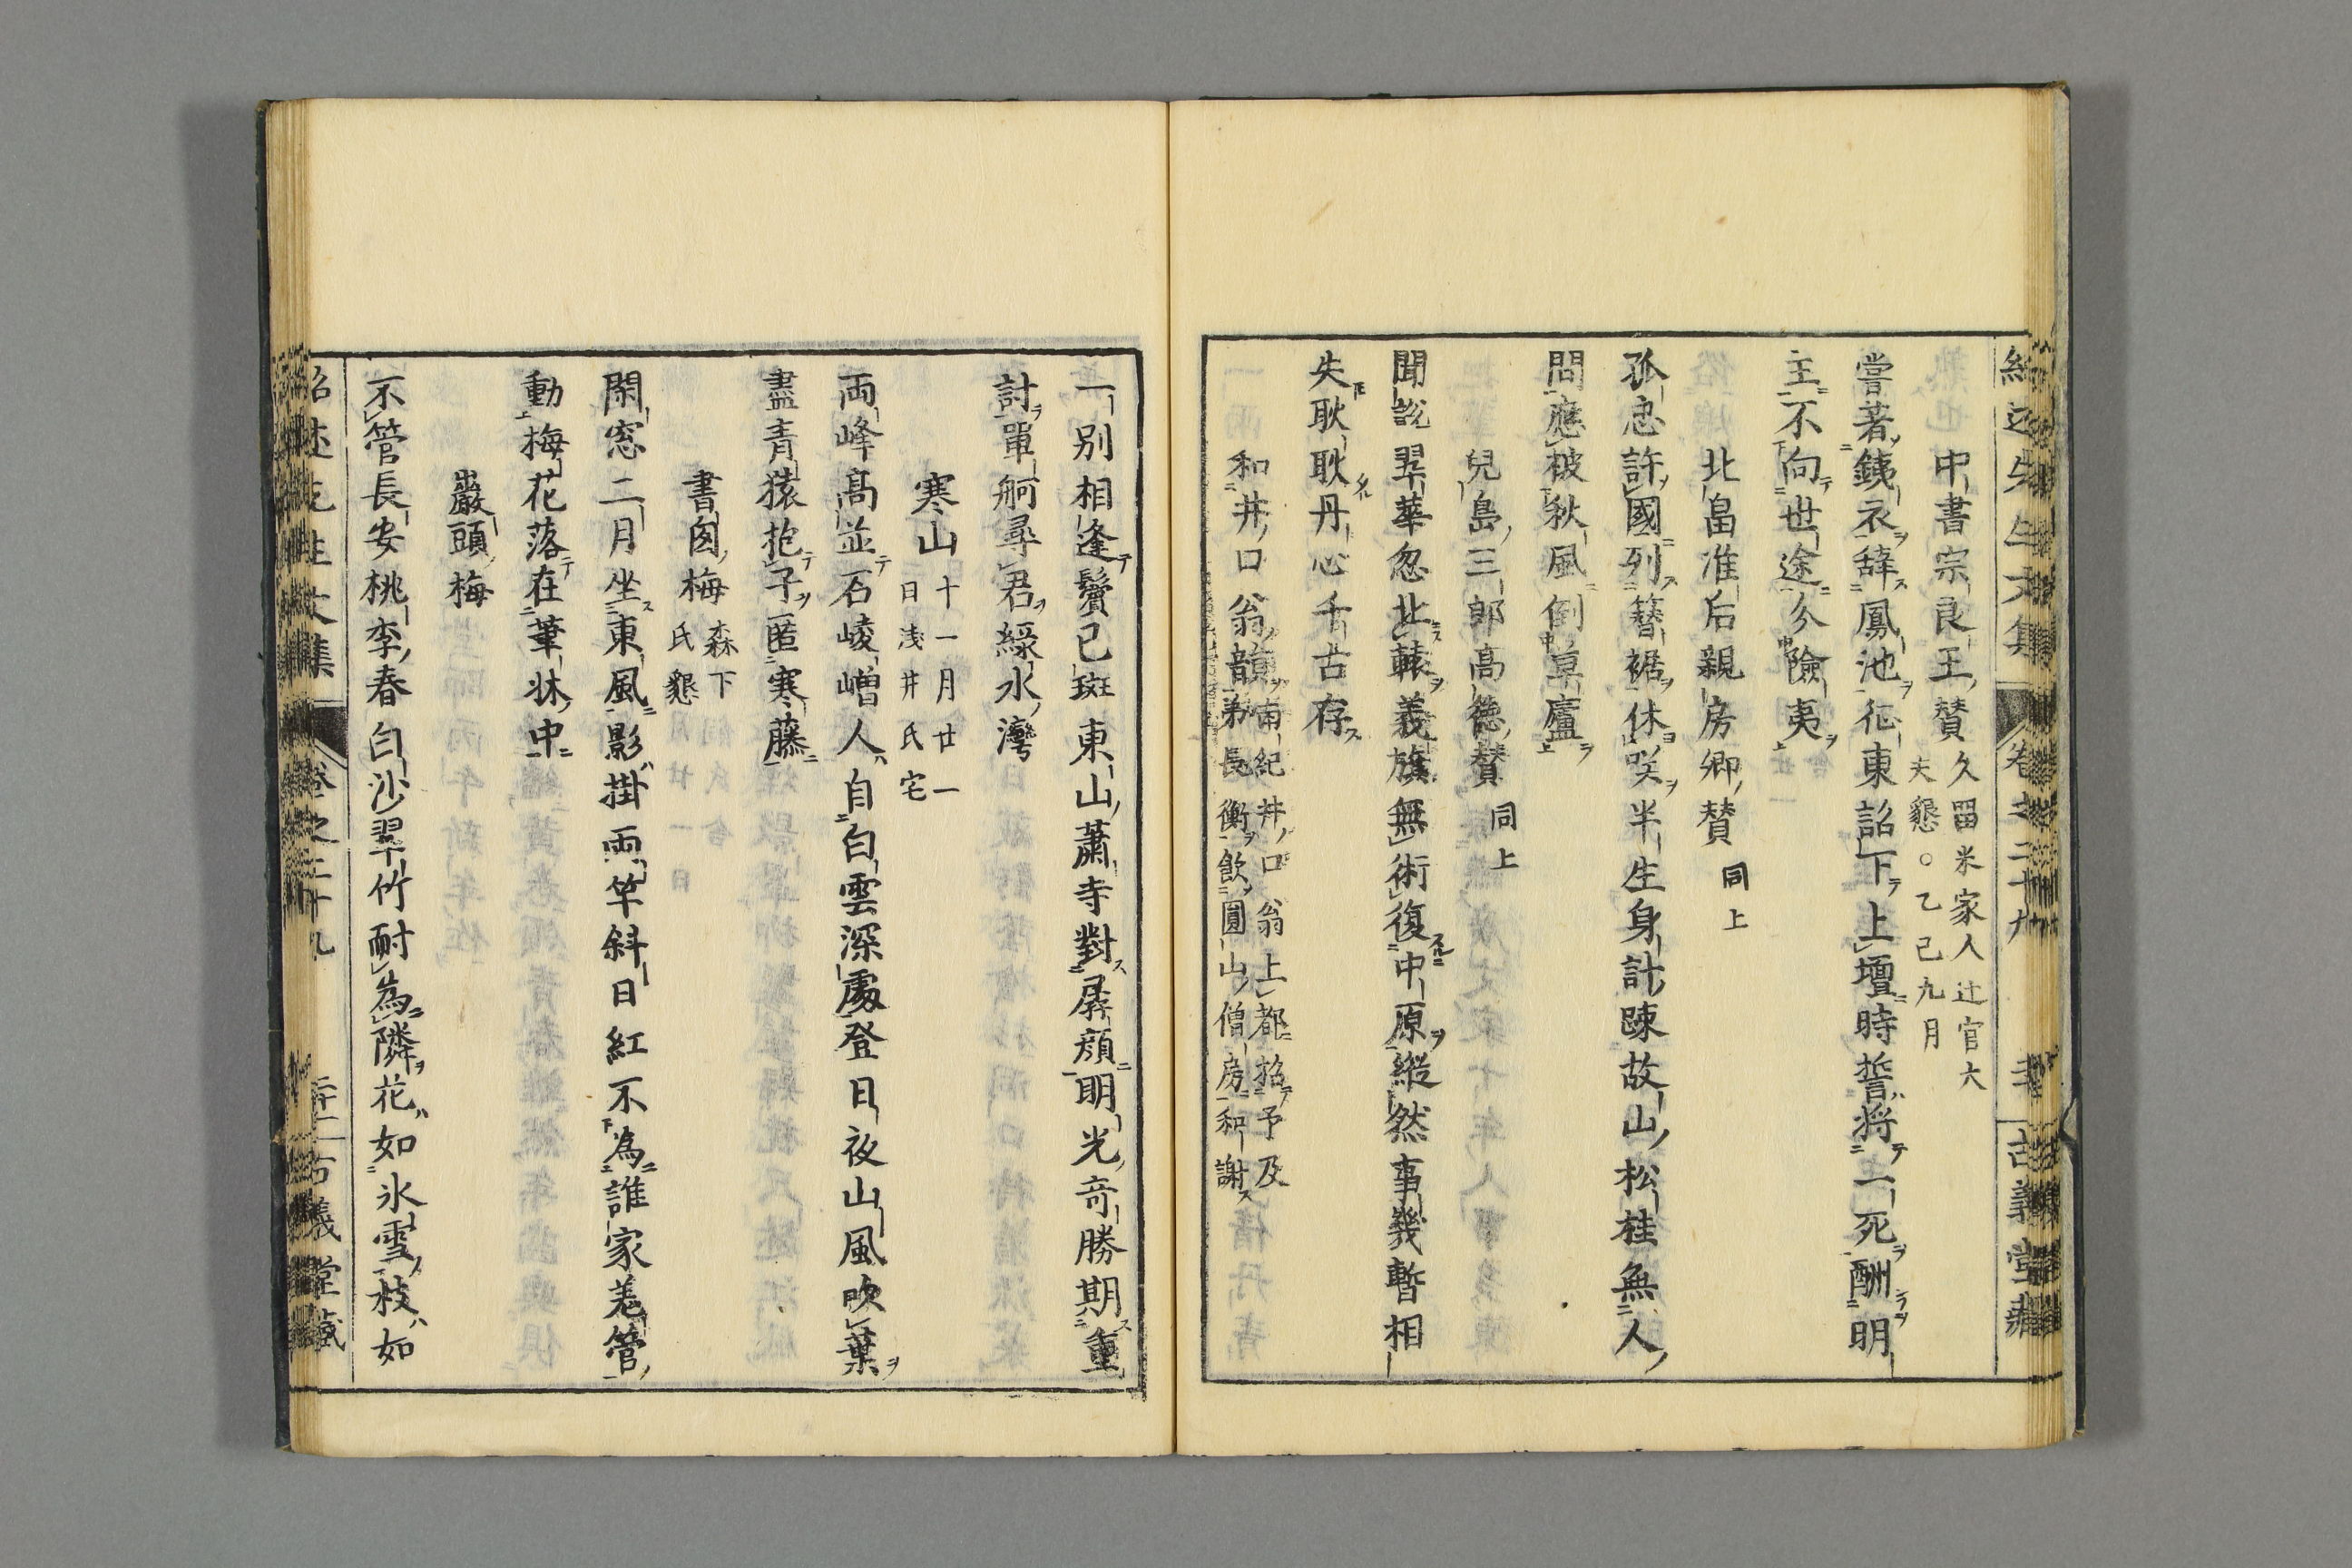 中書宗良王賛 久畱米家人辻官六
夫懇○乙巳九月
嘗著銕衣辞鳳池征東詔下上壇時誓将一死酬明
主不向世途分險夷
北畠准后親房卿賛 同上
孤忠許國列簪裾休咲半生身計踈故山松桂無人
問應被秋風倒草廬
兒島三郎高徳賛 同上
聞説翠華忽北轅義旗無術復中原縦然事幾暫相
失耿耿丹心千古存
和井口翁韻 南紀井口翁上都招予及
弟長衡飲圓山僧房和謝
一別相逢鬢已斑東山蕭寺對孱顔明光竒勝期重
討單舸尋君緑水灣
寒山 十一月廿一
日浅井氏宅
両峰髙並石崚嶒人自白雲深處登日夜山風吹葉
盡青猿抱子匿寒藤
書囱梅 森下
氏懇
閑窓二月坐東風影掛両竿斜日紅不為誰家羌管
動梅花落在筆牀中
巖頭梅
不管長安桃李春白沙翠竹耐為隣花如氷雪枝如
紹述先生文集 卷之二十九 古義堂藏